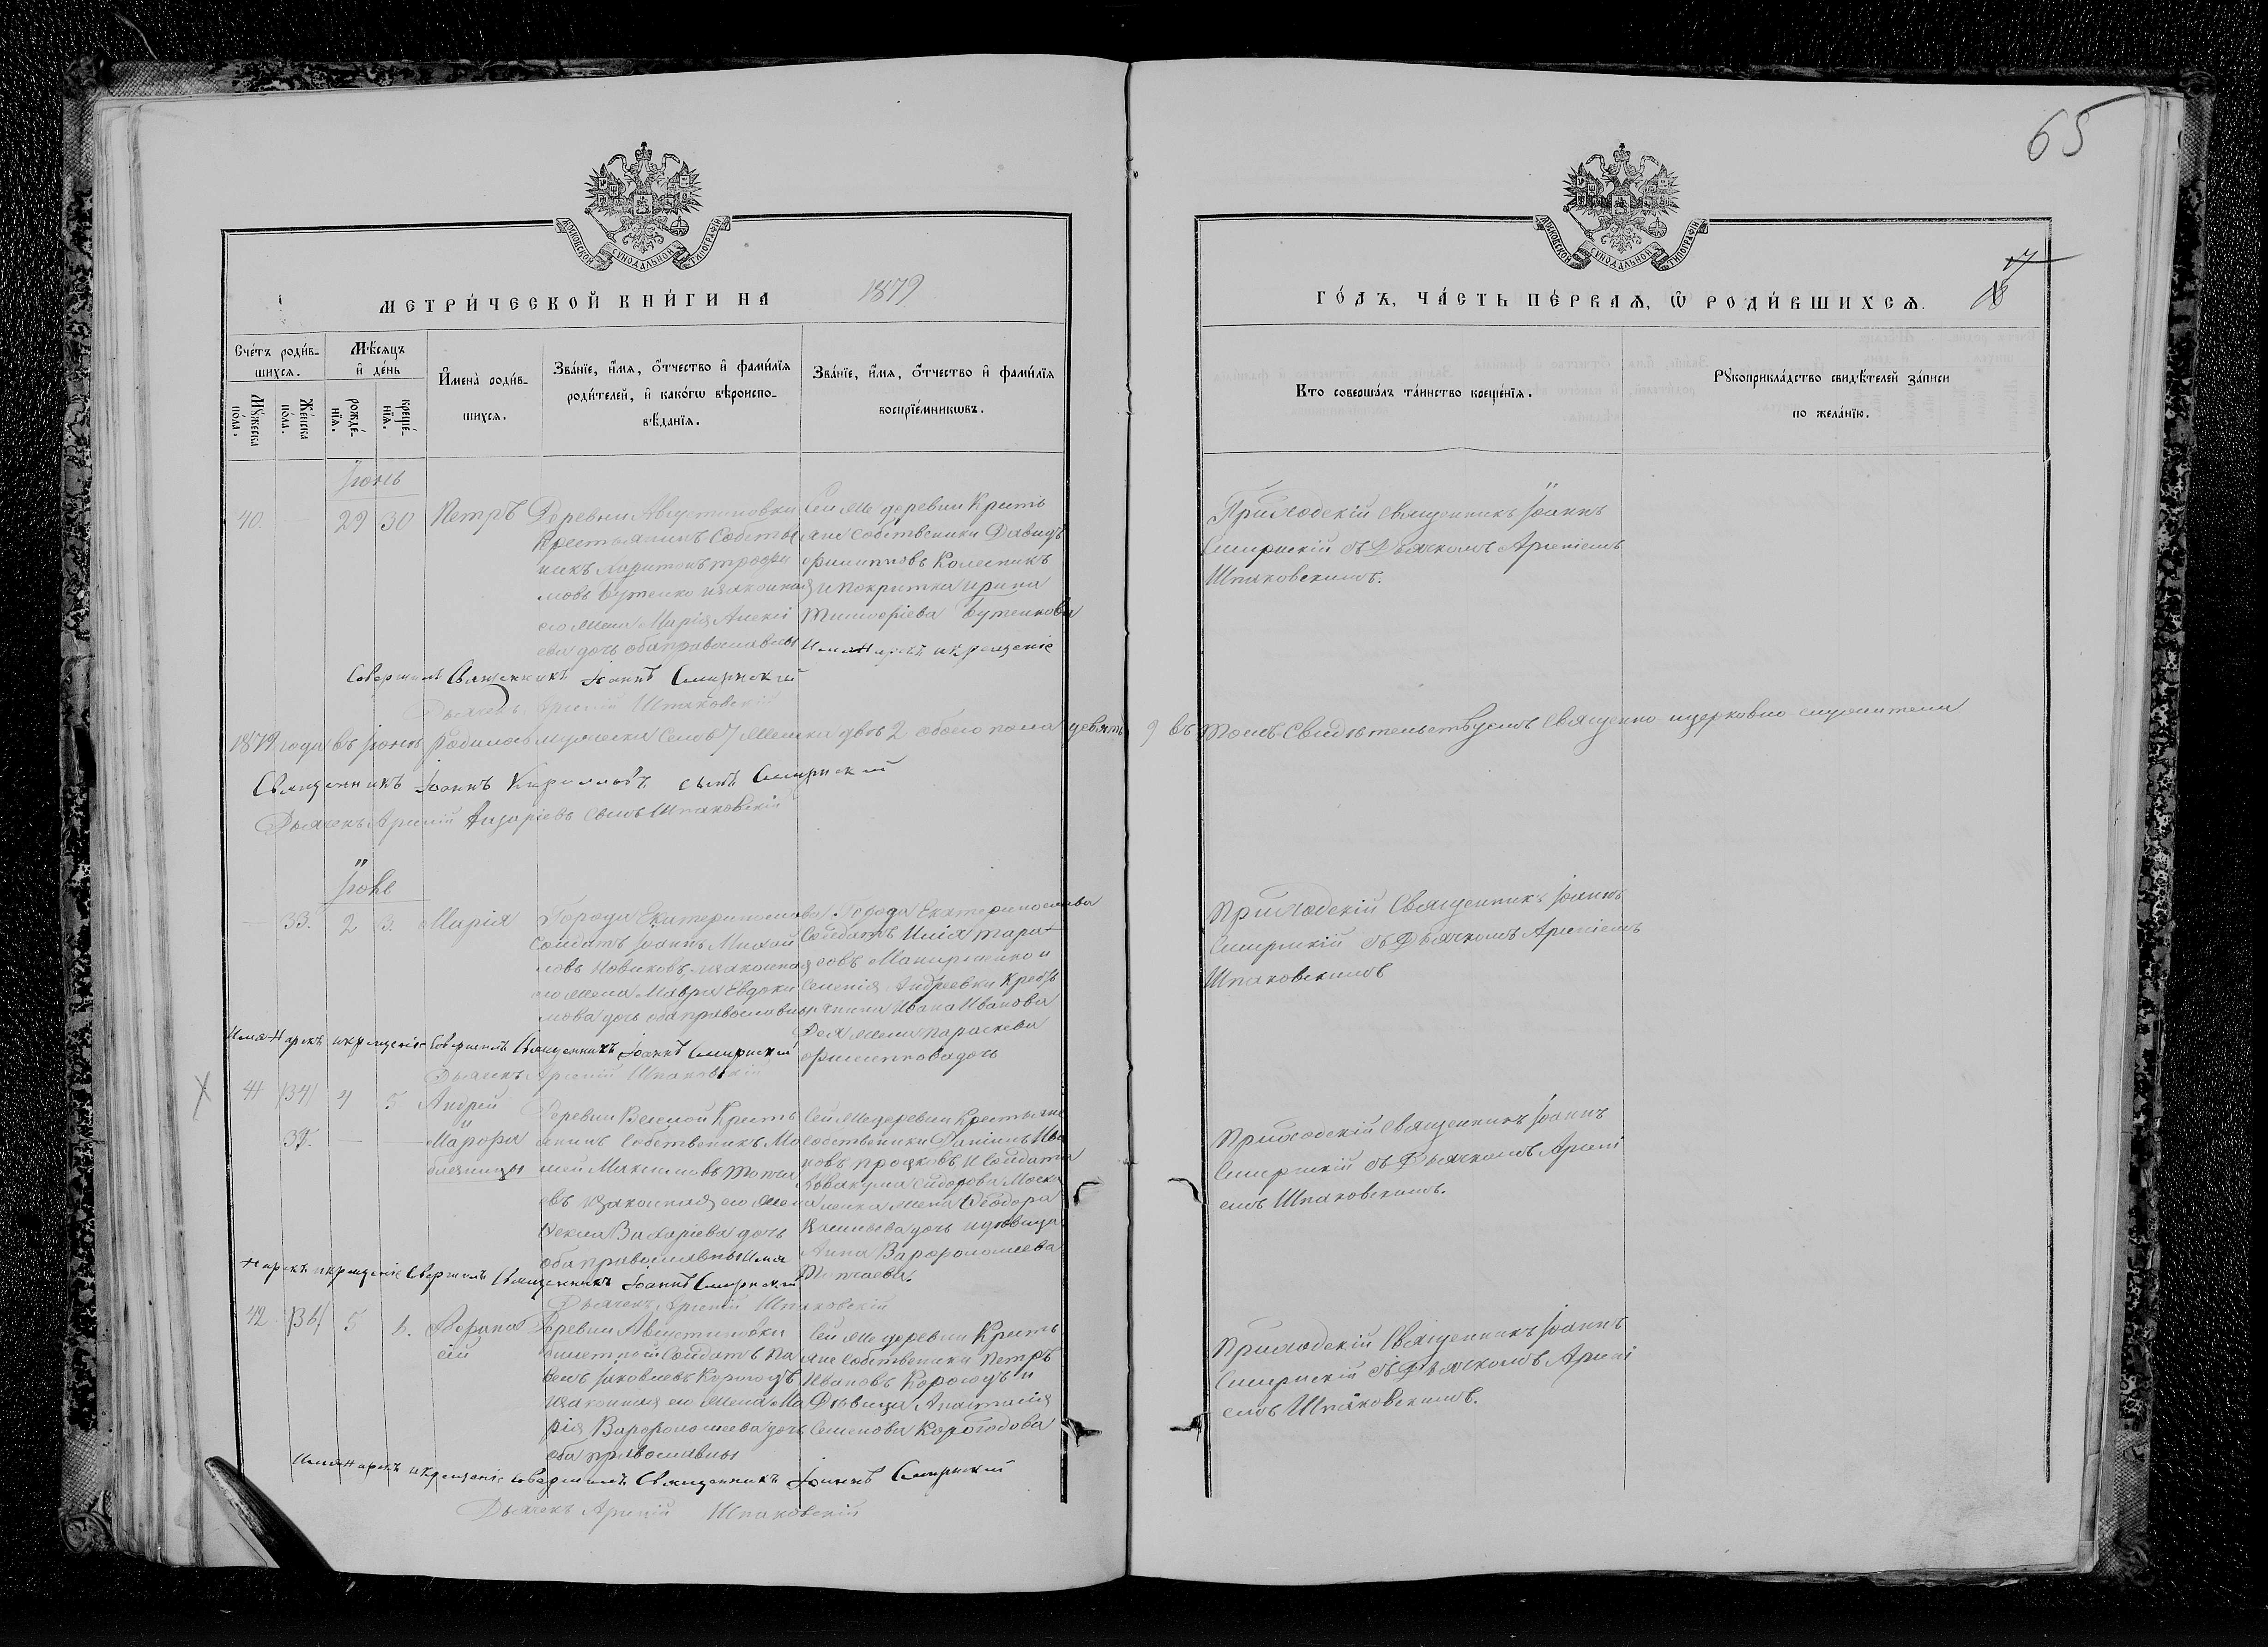 65
МОСКОВСКОЙ СУНОДАЛЬНОЙ ТИПОГРАФІИ
МОСКОВСКОЙ СУНОДАЛЬНОЙ ТИПОГРАФІИ
МЕТРИ́ЧЕСКОЙ КНИ́ГИ НА 1879
ГО́ДЪ, ЧА́СТЬ ПЕ́РВАЯ, Ѿ РОДИ́ВШИХСЯ.
Сче́тъ роди́вшихся.
Мѹжеска по́ла.
Же́нска по́ла.
Мѣ́сяцъ и҆ де́нь
рожде́нїя.
креще́нїя.
И҆мена̀ роди́вшихся.
Зва́нїе, и҆́мя, ѻ҆́тчество и҆ фами́лїя
роди́телей, и҆ како́гѡ вѣроиспо-
вѣ́данїя.
Зва́нїе, и҆́мя, ѻ҆́тчество и҆ фами́лїя
воспрїе́мникѡвъ.
Кто соверша́лъ та́инство креще́нїя.
Рѹкоприкла́дство свидѣ́телей за́писи
по жела́нїю.
Іюнь
40. 29 30 Петръ
Деревни Августиновки
Крестьянинъ Собствен
никъ Харитонъ Трофи
мовъ Бутенко и законная
его жена Марія Алексі
ева дочь оба православны
Сей же деревни Кресть
яне собственники Давидъ
Филипповъ Колесникъ
и покритка Ирина
Тимофіева Бутенкова
Имя нарекъ и крещеніе
Приходскій Священникъ Іоаннъ
Смирнскій съ Дьячкомъ Арсеніемъ
Шпаковскимъ.
Совершилъ Священникъ Іоаннъ Смирнскій
Дьячекъ Арсеній Шпаковскій
1879 года въ Іюнѣ родилось мужеска семь 7 женска двѣ 2 обоего пола девять 9 въ томъ Свидѣтельствуемъ Священно-церковно служители
Священникъ Іоаннъ Кирилловъ сынъ Смирнскій
Дьячекъ Арсеній Назаріевъ сынъ Шпаковскій
Іюль
33. 2 3. Марія
Города Екатеринослава
Солдатъ Іоаннъ Михай
ловъ Новиковъ, и законная
его жена Мавра Евдоки
мова дочь оба православны
Города Екатеринослава
Солдатъ Илія Тара
совъ и
Андреевки Кресть
янина Ивана Иванова
жена Параскева
Филиппова дочь
Приходскій Священникъ Іоаннъ
Смирнскій съ Дьячкомъ Арсеніемъ
Шпаковскимъ
Имя Нарекъ и крещеніе Совершилъ Священникъ Іоаннъ Смирнскій
Дьячекъ Арсеній Шпаковскій
41 (34) 4 5 Андрей
35. — — Марфа
близнецы
Деревни Вежной Кресть
янинъ Собственникъ Мо
сей Максимовъ Топча
евъ и законная его жена
Текла Захаріева дочь
оба православны Имя
Сей же деревни Крестьяне
собственники Даніилъ Ива
новъ и солдата
Аввакума Сидорова Моска
ленка жена Ѳеодора
Васильева дочь и дѣвица
Анна Варфоломеева
Топчаева.
Приходскій Священникъ Іоаннъ
Смирнскій съ Дьячкомъ Арсені
емъ Шпаковскимъ.
Нарекъ и крещеніе Совершилъ Священникъ Іоаннъ Смирнскій
Дьячекъ Арсеній Шпаковскій
42 (36) 5 6. Аѳанасій
Деревни Августиновки
билетный Солдатъ Па
велъ Іаковлевъ Корогодъ
и законная его жена Ма
рія Варфоломеева дочь
оба православны
Сей же деревни Кресть
яне собственники Петръ
Ивановъ Корогодъ и
Дѣвица Анастасія
Семенова Корогодова
Приходскій Священникъ Іоаннъ
Смирнскій съ Дьячкомъ Арсені
емъ Шпаковскимъ.
Имя нарекъ и крещеніе совершилъ Священникъ Іоаннъ Смирнскій
Дьячекъ Арсеній Шпаковскій